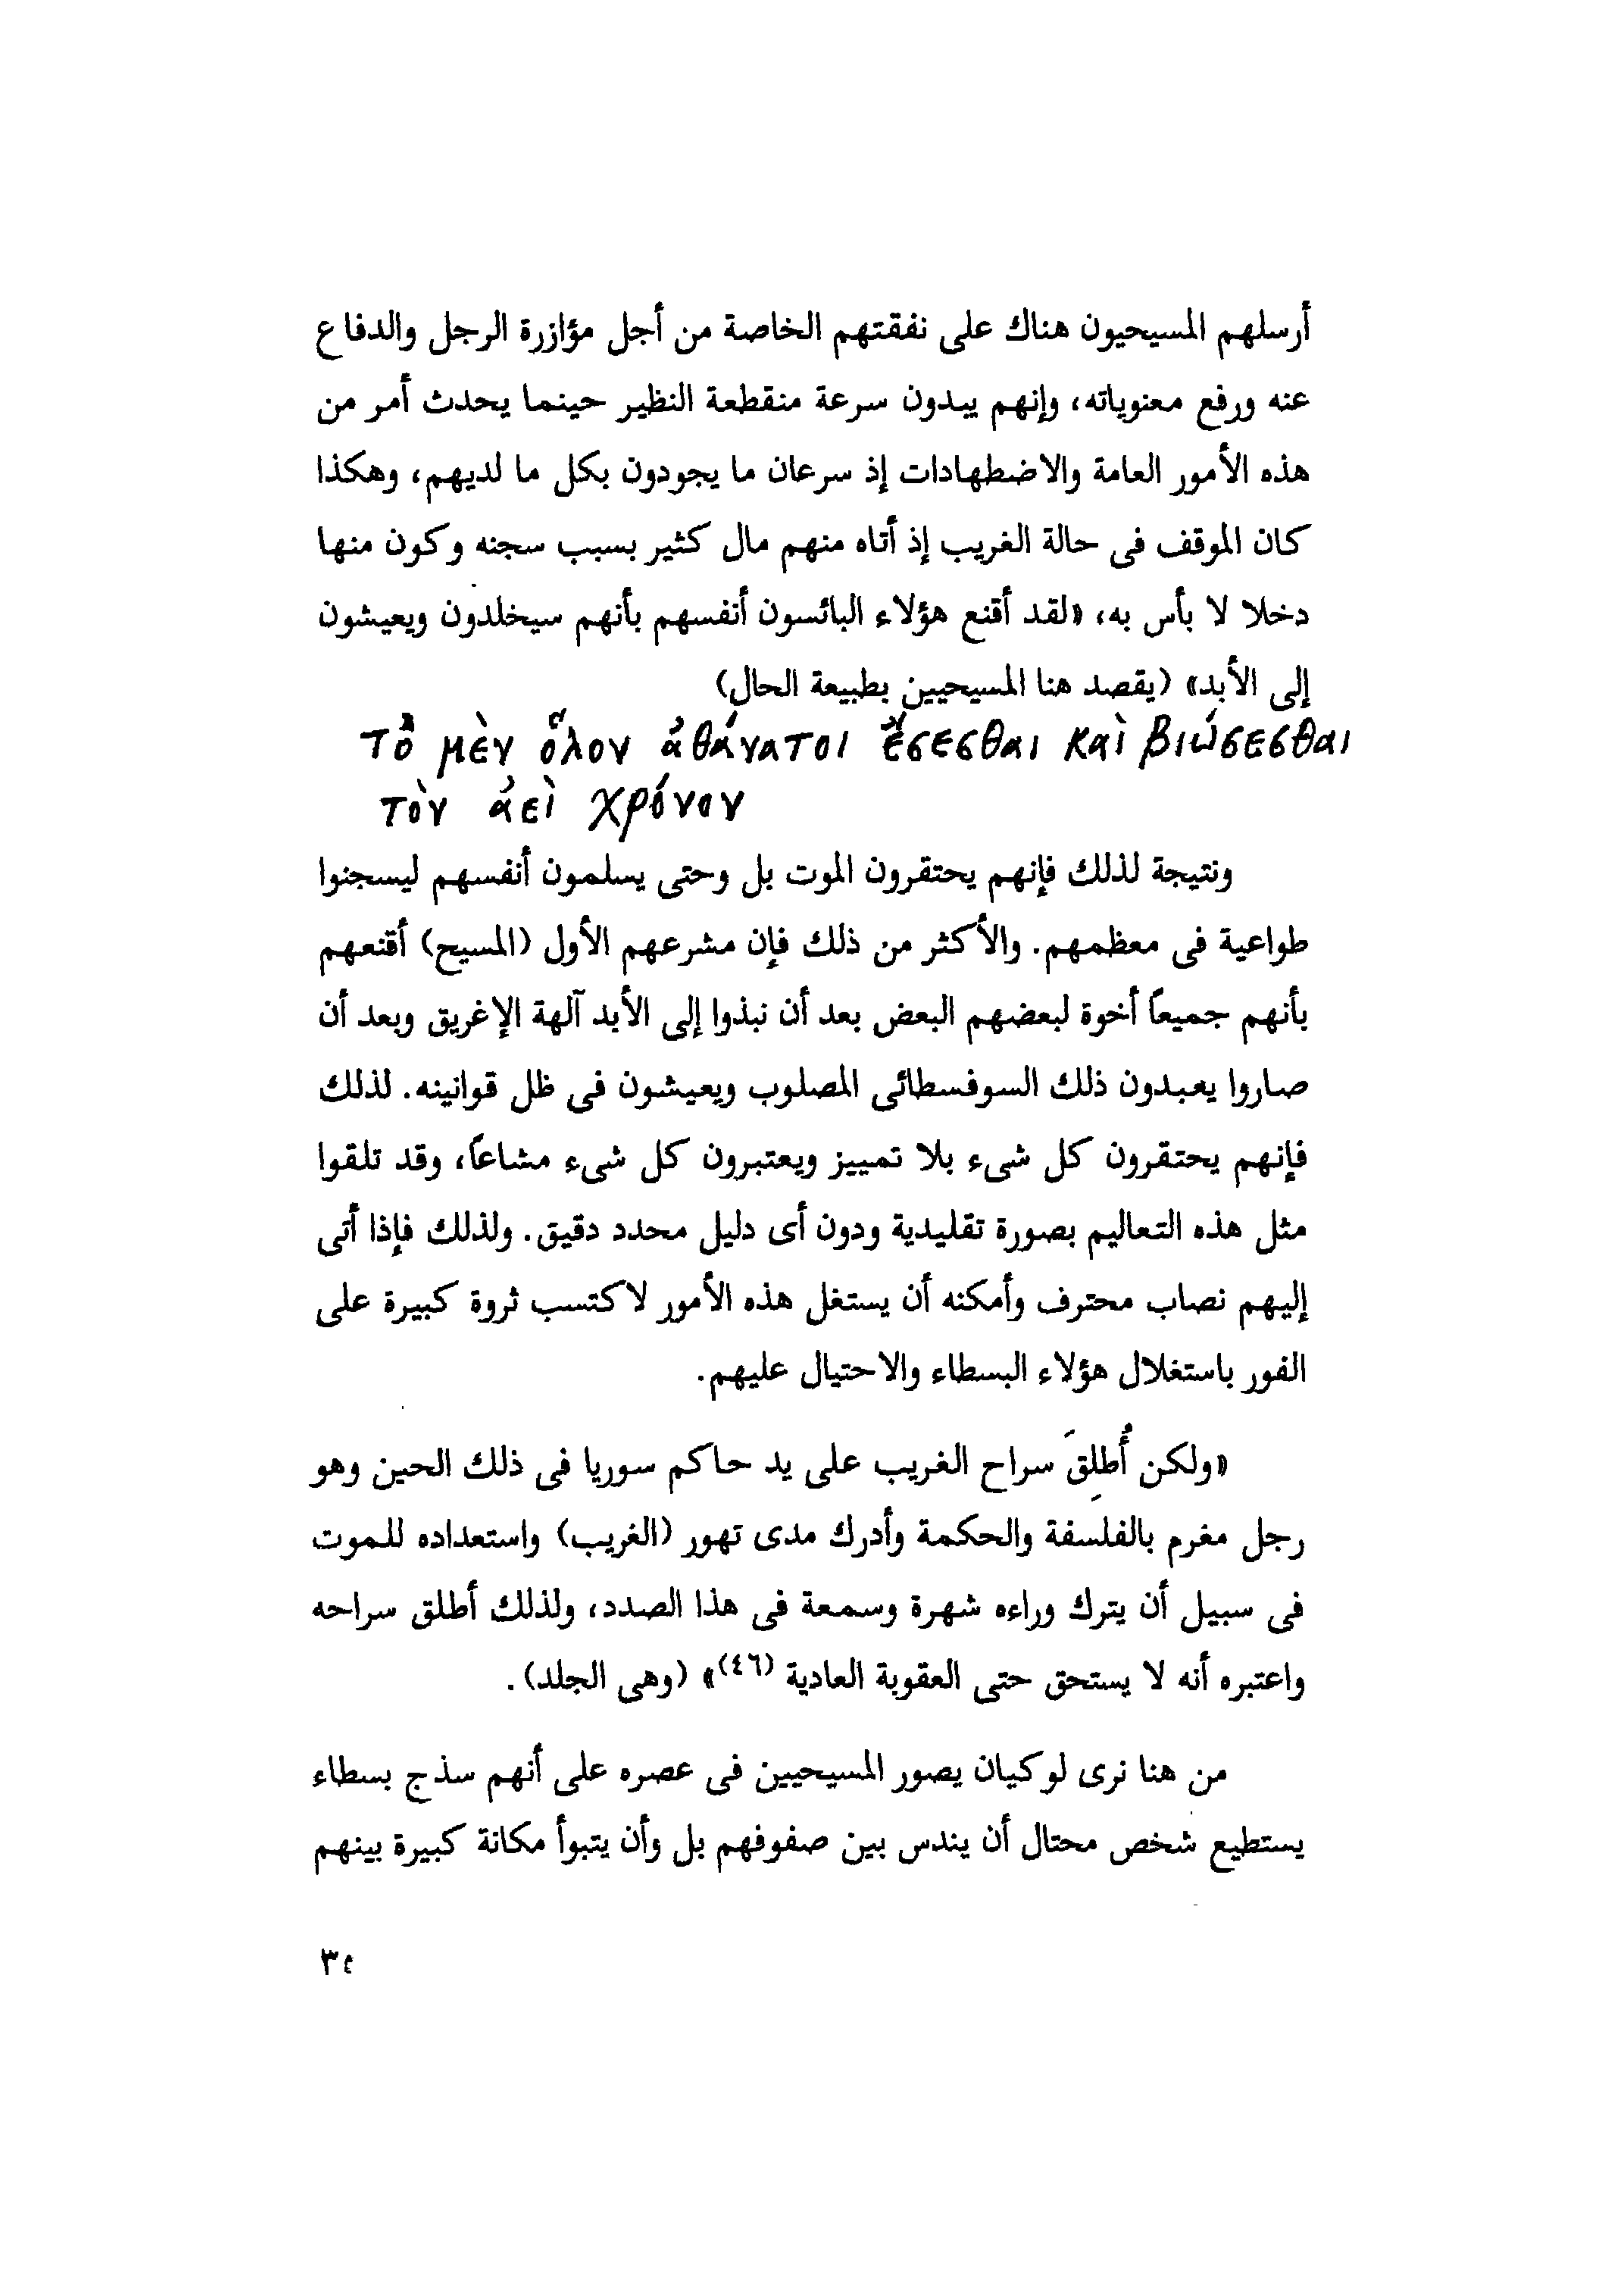 أرسلهم المسيحيون هناك على نفقتهم الخاصة من أجل مؤازرة الرجل والدفاع
عنه ورفع معنوياته، وإنهم يبدون سرعة منقطعة النظير حينما يحدث أمر من
هذه الأمور العامة والاضطهادات إذ سرعان ما يجودون بكل ما لديهم، وهكذا
كان الموقف فى حالة الغريب إذ أتاه منهم مال كثير بسبب سجنه وكون منها
دخلا لا بأس به، «لقد أقنع هؤلاء البائسون أنفسهم بأنهم سيخلدون ويعيشون
إلى الأبد» (يقصد هنا المسيحيين بطبيعة الحال)
τὸ μὲν ὅλον ἀθάνατοι ἔσεσθαι καὶ βιώσεσθαι
τὸν ἀεὶ χρόνον
ونتيجة لذلك فإنهم يحتقرون الموت بل وحتى يسلمون أنفسهم ليسجنوا
طواعية فى معظمهم. والأكثر من ذلك فإن مشرعهم الأول (المسيح) أقنعهم
بأنهم جميعاً أخوة لبعضهم البعض بعد أن نبذوا إلى الأبد آلهة الإغريق وبعد أن
صاروا يعبدون ذلك السوفسطائى المصلوب ويعيشون فى ظل قوانينه. لذلك
فإنهم يحتقرون كل شىء بلا تمييز ويعتبرون كل شىء مشاعاً، وقد تلقوا
مثل هذه التعاليم بصورة تقليدية ودون أى دليل محدد دقيق. ولذلك فإذا أتى
إليهم نصاب محترف وأمكنه أن يستغل هذه الأمور لاكتسب ثروة كبيرة على
الفور باستغلال هؤلاء البسطاء والاحتيال عليهم.
«ولكن أُطلِقَ سراح الغريب على يد حاكم سوريا فى ذلك الحين وهو
رجل مغرم بالفلسفة والحكمة وأدرك مدى تهور (الغريب) واستعداده للموت
فى سبيل أن يترك وراءه شهرة وسمعة فى هذا الصدد، ولذلك أطلق سراحه
واعتبره أنه لا يستحق حتى العقوبة العادية (٤٦)» (وهى الجلد).
من هنا نرى لوكيان يصور المسيحيين فى عصره على أنهم سذج بسطاء
يستطيع شخص محتال أن يندس بين صفوفهم بل وأن يتبوأ مكانة كبيرة بينهم
٣٤